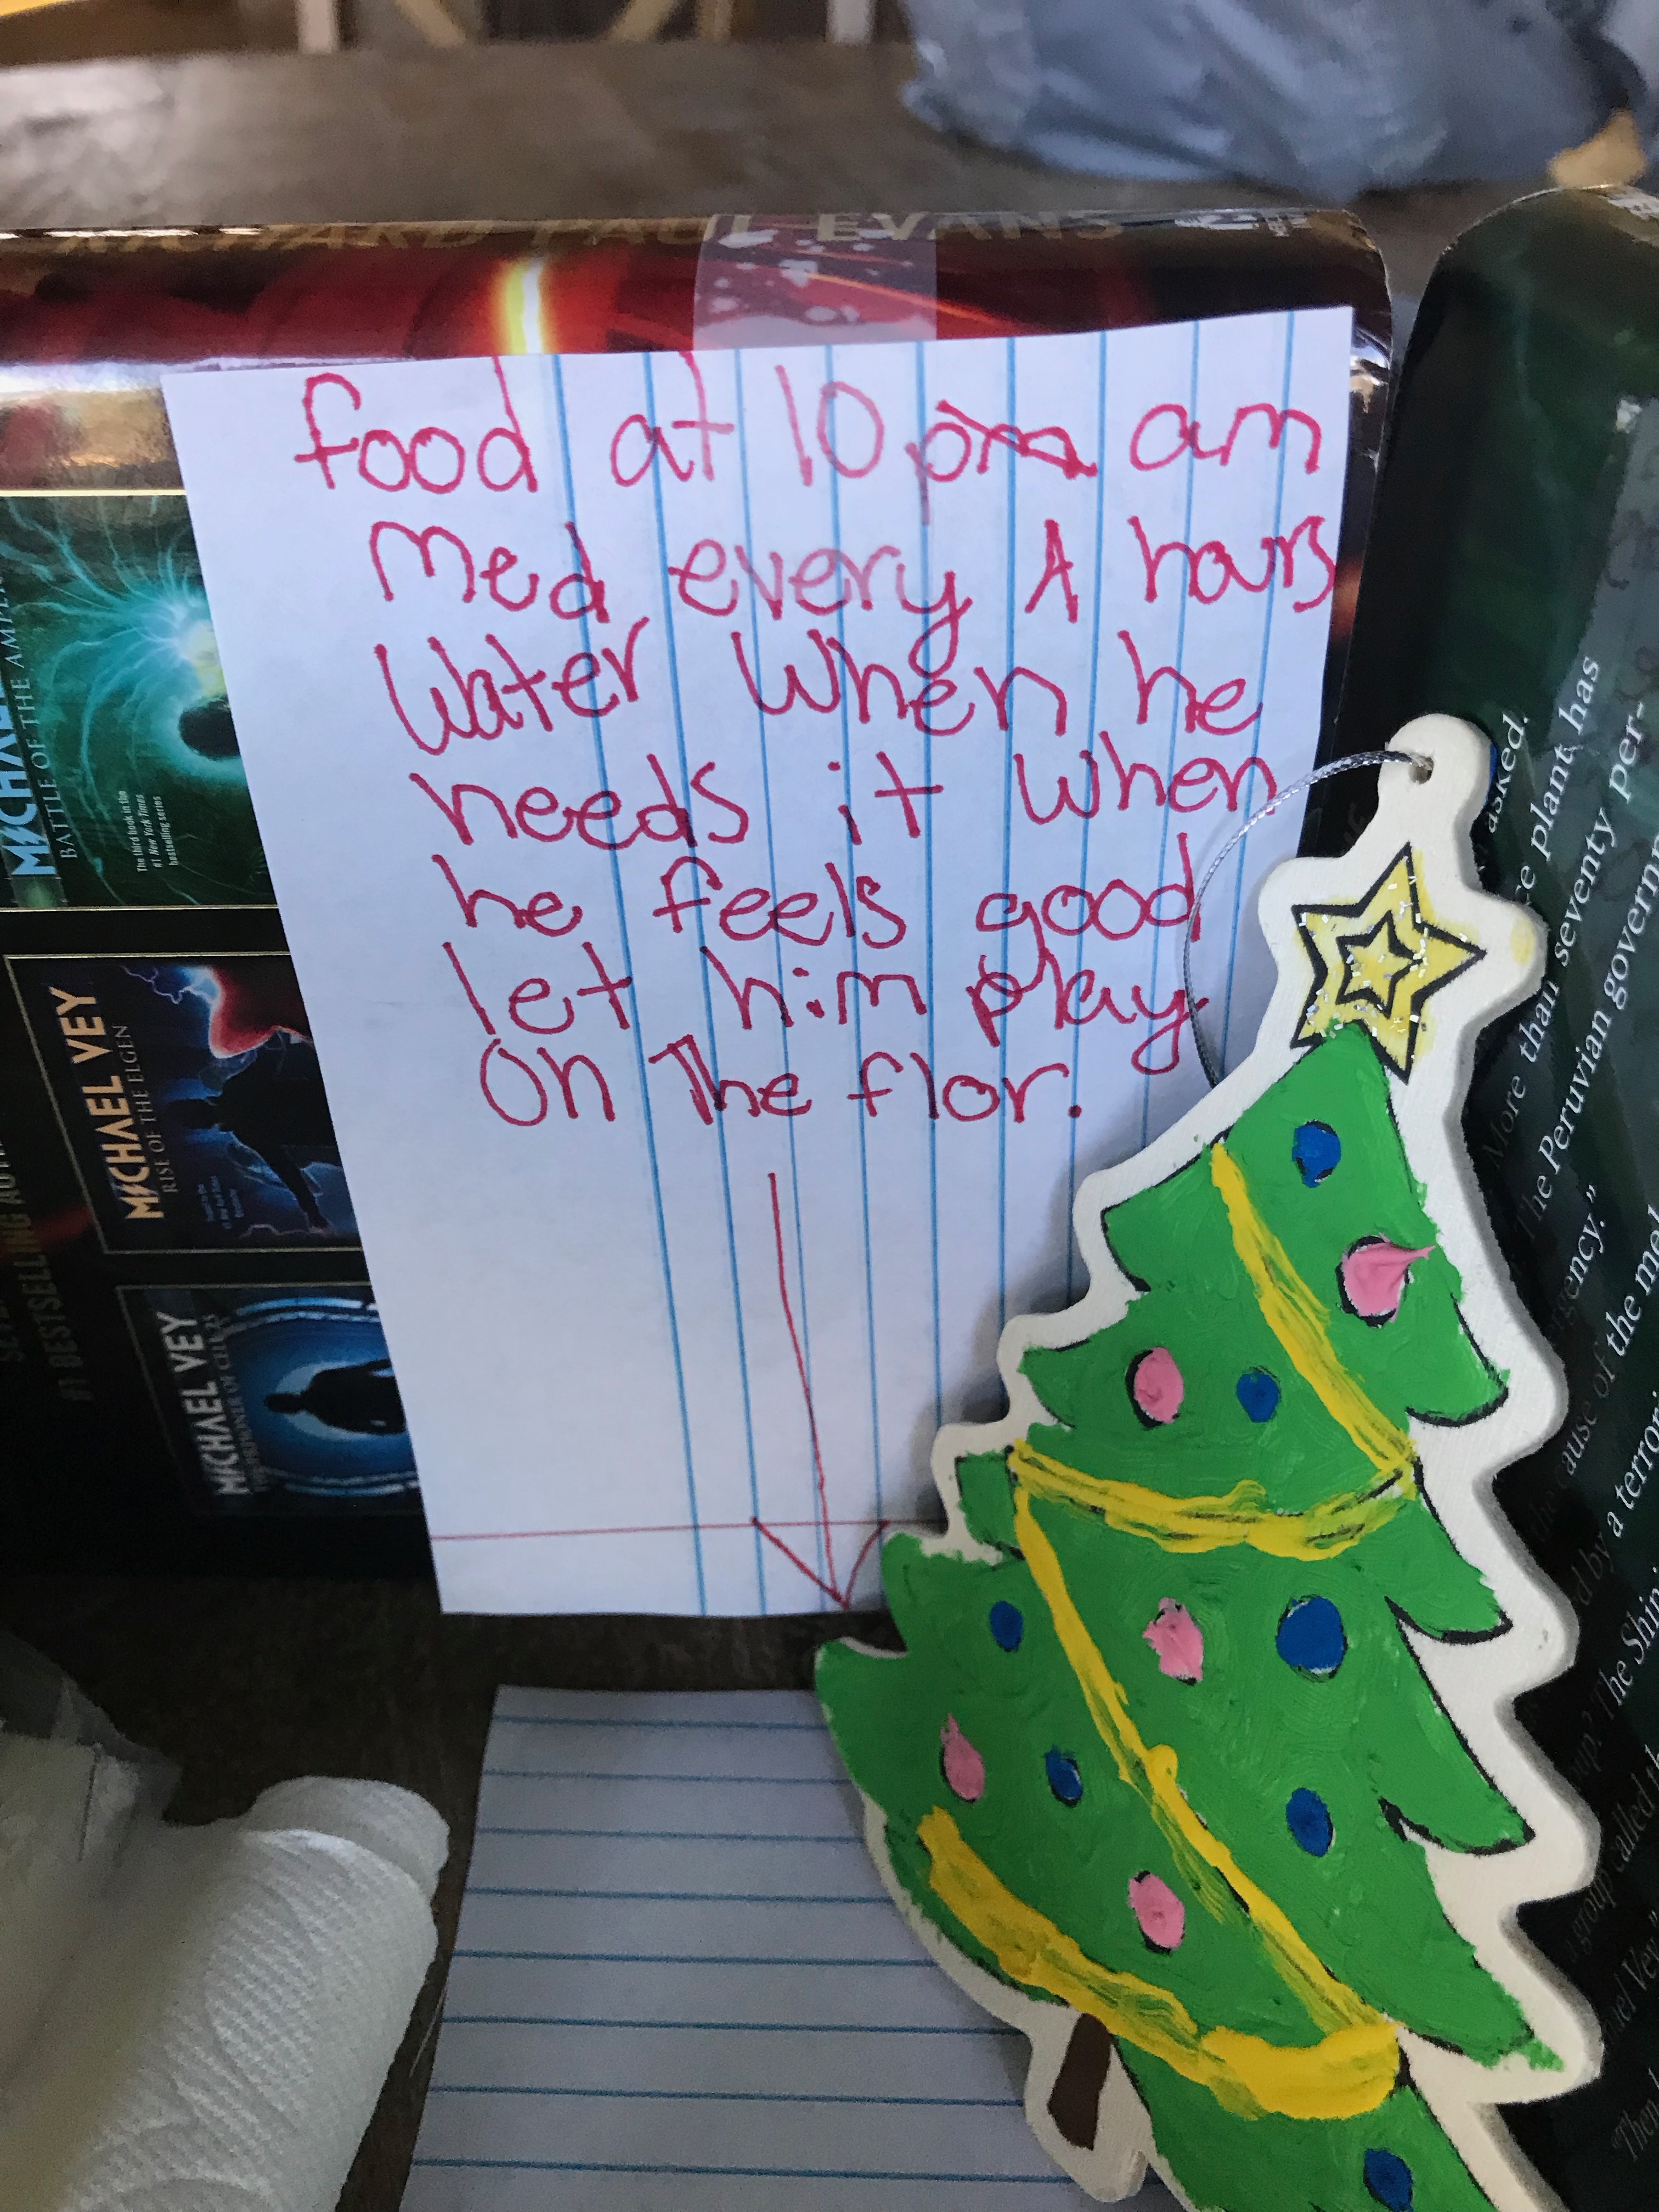 RICHARD PAUL EVANS
food at 10 pm am
Med every 4 hours
Water when he
needs it when
he feels good
let him play
On The flor.
MICHAEL VEY
BATTLE OF THE AMPERE
The third book in the
#1 New York Times
bestselling series
MICHAEL VEY
RISE OF THE ELGEN
MICHAEL VEY
THE PRISONER OF CELL 25
#1 BESTSELLING
asked.
plant has
More than seventy per-
The Peruvian governm
gency.”
the cause of the
by a terror
The Shin
a group called th
Vey